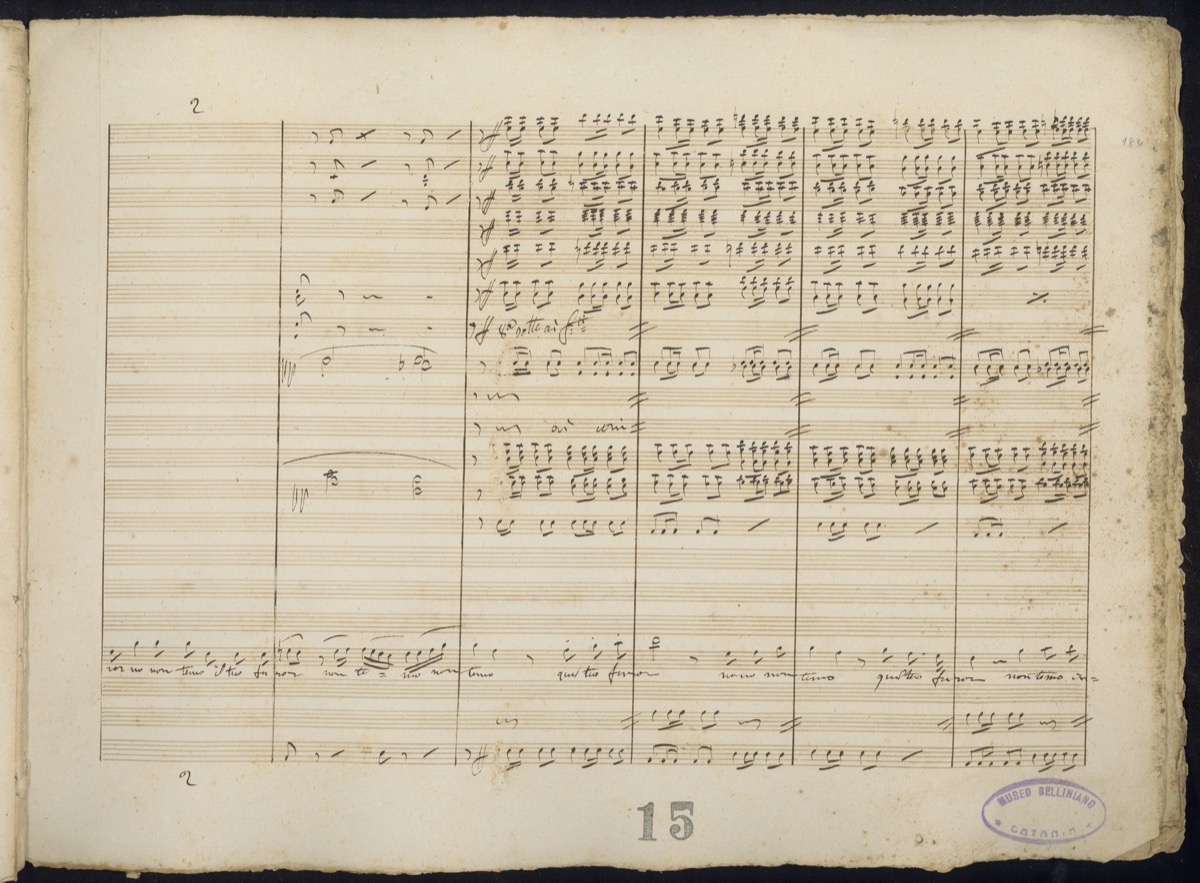 2
8va sotto ai
ai corni
ror no non temo il tuo furor non te = mo non temo quel tuo furor no no non temo quel tuo furor non temo
2
15
MUSEO BELLINIANO
CATANIA